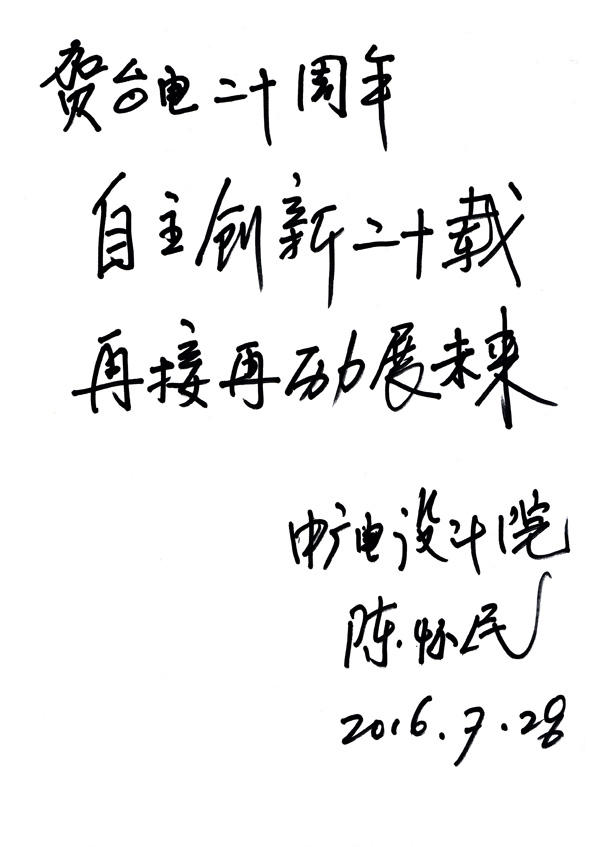 贺台电二十周年
自主创新二十载
再接再励展未来
中广电设计院
陈怀民
2016.7.28